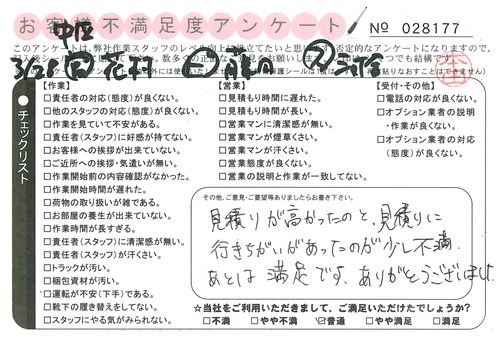 お客様不満足度アンケート!
No 028177
このアンケートは、弊社作業スタッフのレベル向上に役立てたいと思います。否定的なアンケートになりますので、
中区
3/28
【作業】
□責任者の対応(態度)が良くない。
□他のスタッフの対応(態度)が良くない。
□作業を見ていて不安がある。
□責任者(スタッフ)に好感が持てない。
□お客様への挨拶が出来ていない。
□ご近所への挨拶・気遣いが無い。
□作業開始前の内容確認がなかった。
□作業開始時間が遅れた。
□荷物の取り扱いが雑である。
□お部屋の養生が出来ていない。
□作業時間が長すぎる。
□責任者(スタッフ)に清潔感が無い。
□責任者(スタッフ)が汗くさい。
□トラックが汚い。
□梱包資材が汚い。
□運転が不安(下手)である。
□靴下の履き替えをしてない。
□スタッフにやる気がみられない。
【営業】
□見積もり時間に遅れた。
□見積もり時間が長い。
□営業マンに清潔感が無い。
□営業マンが煙草くさい。
□営業マンが汗くさい。
□営業態度が良くない。
□営業の説明と作業が一致してない。
【受付・その他】
□電話の対応が良くない。
□オプション業者の説明
・作業が良くない。
□オプション業者の対応
(態度)が良くない。
チェックリスト
その他、ご意見・ご要望等ありましたらお書き下さい。
見積りが高かったのと、見積りに
行きちがいがあったのが少し不満.
あとは満足です。ありがとうございました
☆当社をご利用いただきまして、ご満足いただけたでしょうか?
□不満 □やや不満 ☑普通 □やや満足 □満足